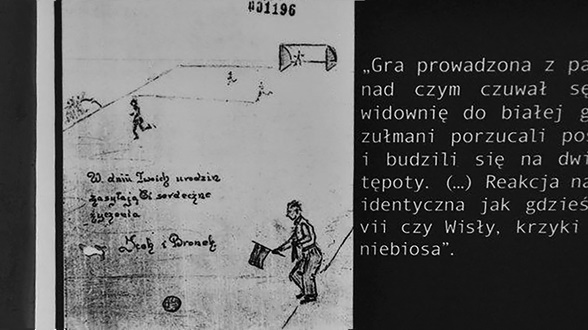 031196
W dniu Twoich urodzin
zasyłają Ci serdeczne
życzenia
Lech i Bronek
„Gra prowadzona z pa
nad czym czuwał sę
widownię do białej g
zułmani porzucali po
i budzili się na dwi
tępoty. (…) Reakcja na
identyczna jak gdzieś
vii czy Wisły, krzyki
niebiosa”.